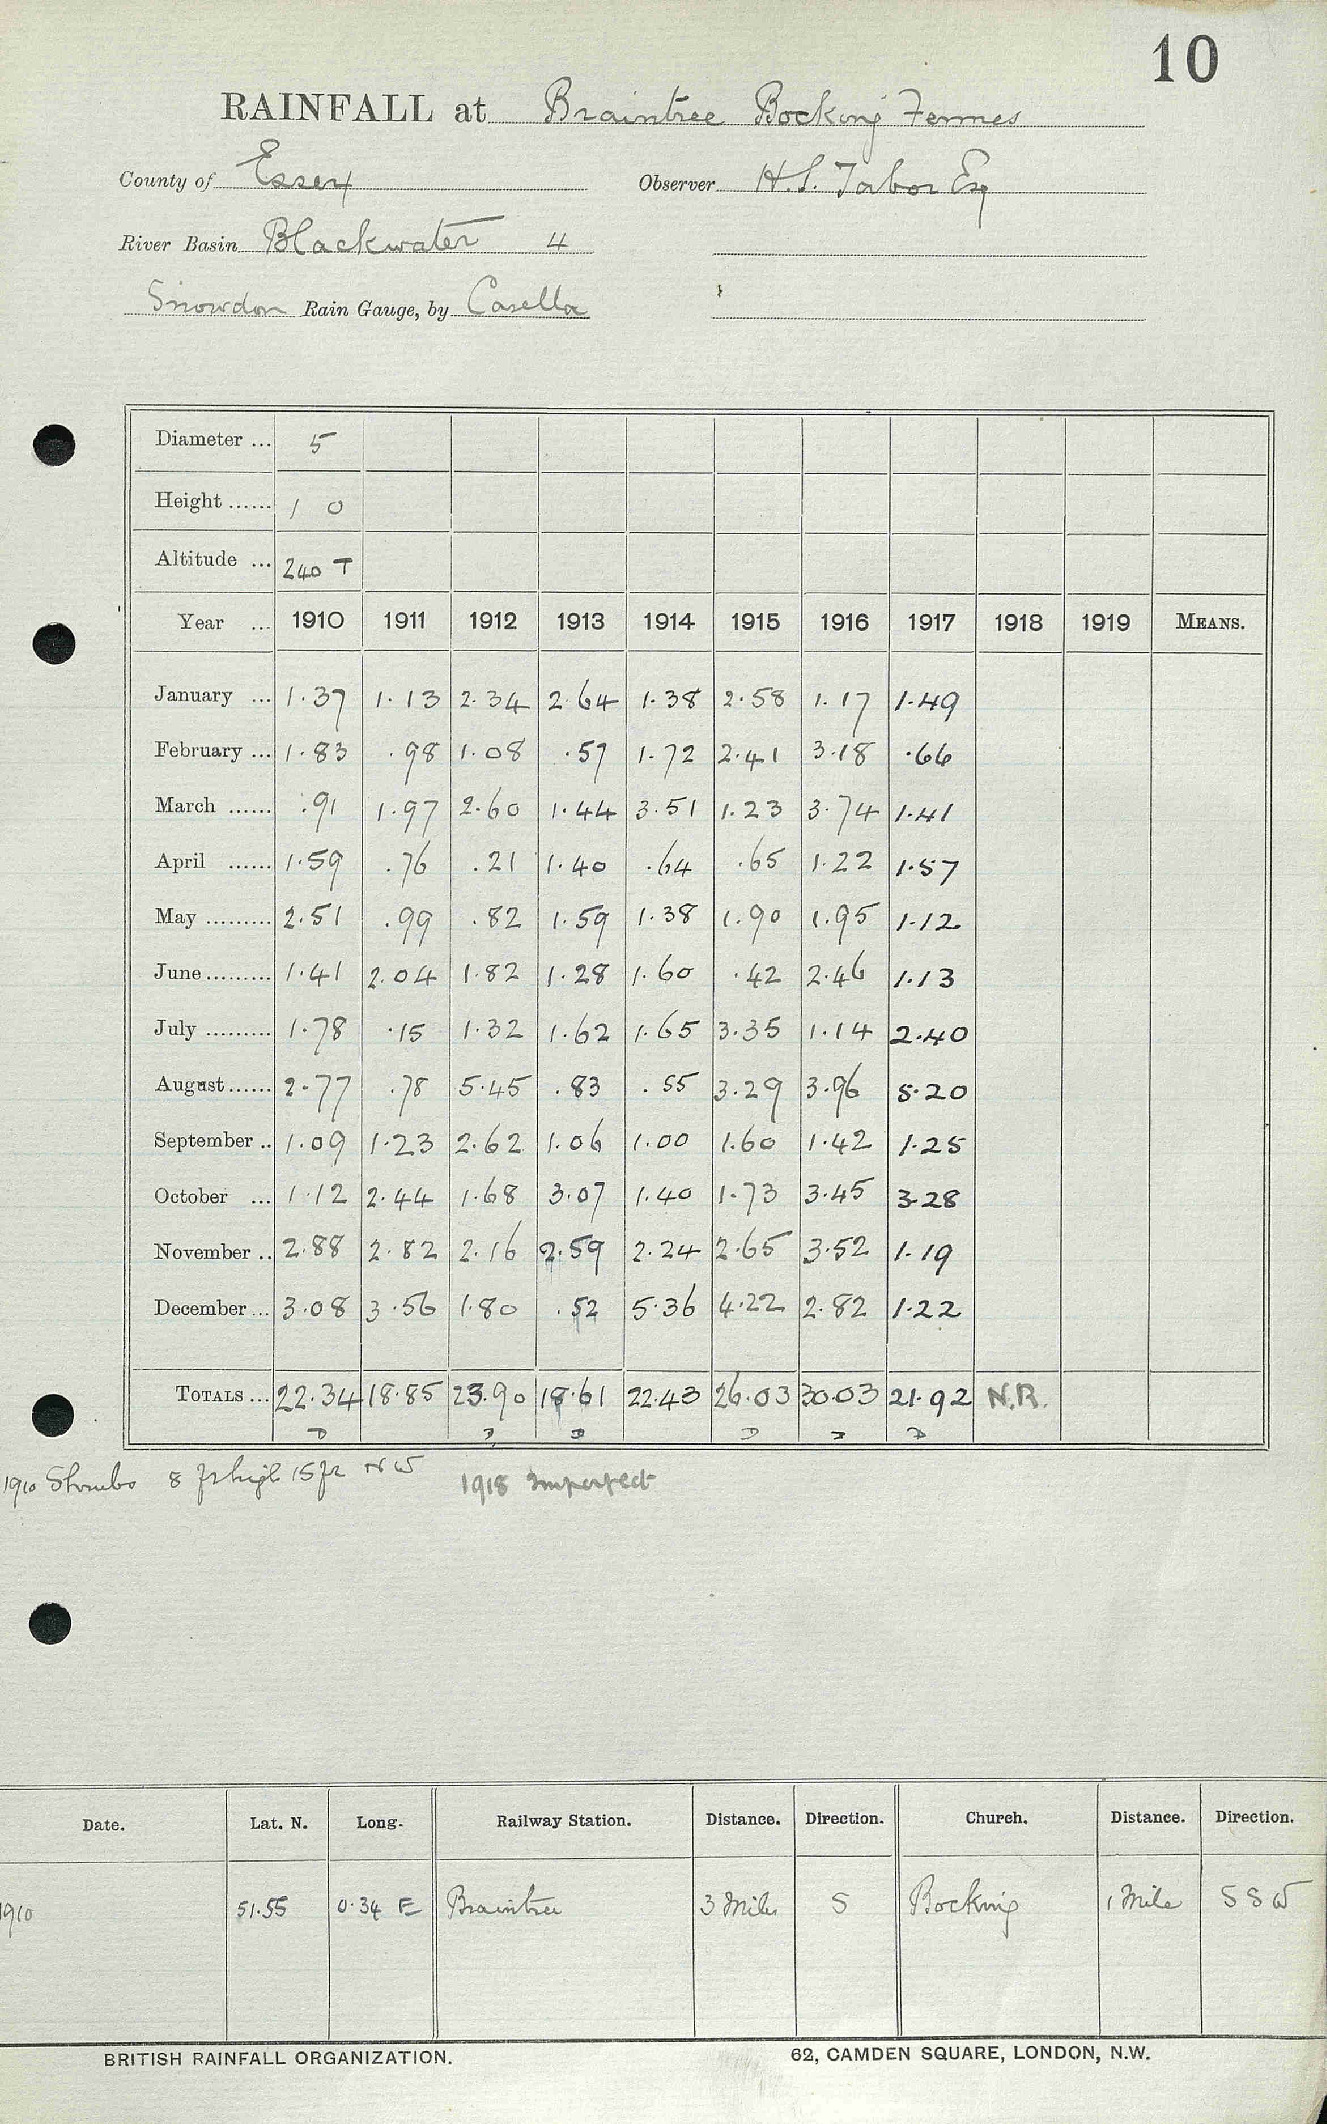 10
RAINFALL at Braintree Bocking Fennes
County of Essex Observer H.S. Tabor Esq
River Basin Blackwater 4
Snowdon Rain Gauge, by Casella
Diameter ... 5
Height ...... 1 0
Altitude ... 240 T
Year ... 1910 1911 1912 1913 1914 1915 1916 1917 1918 1919 MEANS.
January ... 1.37 1.13 2.34 2.64 1.38 2.58 1.17 1.49
February ... 1.83 .98 1.08 .57 1.72 2.41 3.18 .66
March ...... .91 1.97 2.60 1.44 3.51 1.23 3.74 1.41
April ...... 1.59 .76 .21 1.40 .64 .65 1.22 1.57
May ......... 2.51 .99 .82 1.59 1.38 1.90 1.95 1.12
June ......... 1.41 2.04 1.82 1.28 1.60 .42 2.46 1.13
July ......... 1.78 .15 1.32 1.62 1.65 3.35 1.14 2.40
August ...... 2.77 .78 5.45 .83 .55 3.29 3.96 5.20
September .. 1.09 1.23 2.62 1.06 1.00 1.60 1.42 1.25
October ... 1.12 2.44 1.68 3.07 1.40 1.73 3.45 3.28
November .. 2.88 2.82 2.16 2.59 2.24 2.65 3.52 1.19
December ... 3.08 3.56 1.80 .52 5.36 4.22 2.82 1.22
TOTALS ... 22.34 18.85 23.90 18.61 22.43 26.03 30.03 21.92 N.R.
D D D D D D
1910 Shrubs 8 ft high 15 ft NW 1918 Imperfect
Date. Lat. N. Long. Railway Station. Distance. Direction. Church. Distance. Direction.
1910 51.55 0.34 E Braintree 3 Miles S Bocking 1 Mile S S W
BRITISH RAINFALL ORGANIZATION. 62, CAMDEN SQUARE, LONDON, N.W.